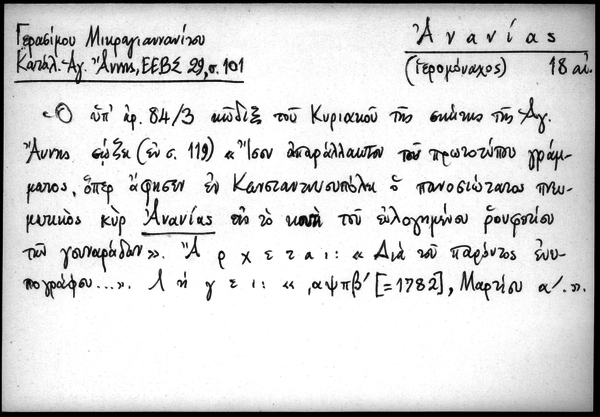 Γερασίμου Μικραγιαννανίτου
Ἀνανίας
Κατάλ. Ἁγ. Ἄννης, ΕΕΒΣ 29, σ. 101
(Ἱερομόναχος) 18 αἰ.
Ὁ ὑπ' ἀρ. 84/3 κῶδιξ τοῦ Κυριακοῦ τῆς σκήτης τῆς Ἁγ.
Ἄννης σῴζει (ἐν σ. 119) « Ἴσον ἀπαράλλακτον τοῦ πρωτοτύπου γράμ-
ματος, ὅπερ ἀφῆκεν ἐν Κωνσταντινουπόλει ὁ πανοσιώτατος πνευ-
ματικὸς κὺρ Ἀνανίας εἰς τὸ τοῦ εὐλογημένου ῥουφετίου
τῶν γουναράδων». Ἄρχεται: « Διὰ τοῦ παρόντος ἐνυ-
πογράφου...». Λήγει: « ͵αψπβ' [=1782], Μαρτίου α΄.».